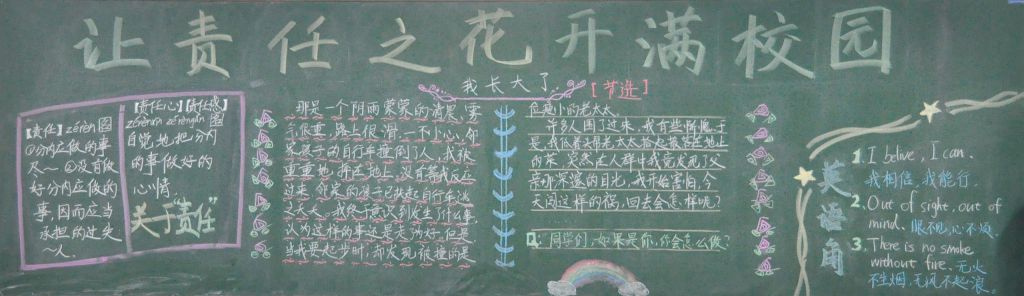 让责任之花开满校园
我长大了
【节选】
【责任】zérèn 图
①分内应做的事
尽～ ②没有做
好分内应做的
事,因而应当
承担的过失
～人.
【责任心】【责任感】
zérènxīn zérèngǎn 图
自觉地把分内
的事做好的
心情.
关于“责任”
那是一个阴雨蒙蒙的清晨,雾
气很重,路上很滑,一下小心,邻
家男子的自行车撞倒了人,我被
重重地摔在地上,没有等我反应
过来,邻家的孩子已扶起自行车逃
之夭夭,我终于意识到发生了什么事,
认为这样的事还是走为好,但是
当我要起步时,却发现被撞的是
位矮小的老太太.
许多人围了过来,我有些惭愧于
是,我低着头帮老太太拾起散落在地上
的菜,突然在人群中我竟发现了父
亲那深邃的目光,我开始害怕,今
天闯这样的祸,回去会怎样呢?
Q:同学们,如果是你,你会怎么做?
英语角
1. I belive, I can.
我相信,我能行.
2. Out of sight, out of
mind. 眼不见,心不烦.
3. There is no smoke
without fire. 无火
不生烟,无风不起浪。